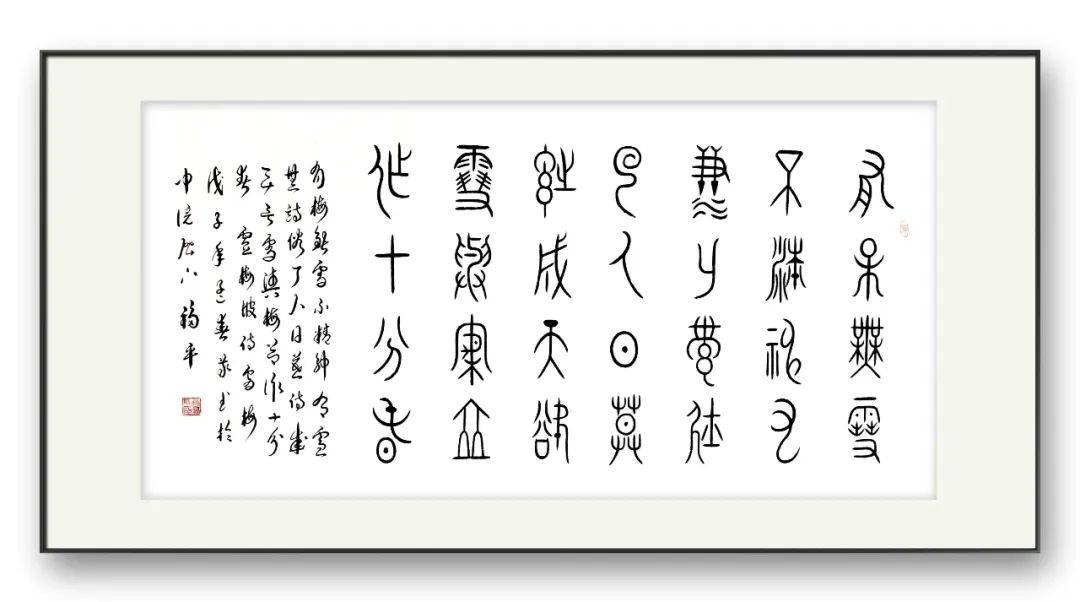 有梅無雪
不精神有
雪無詩俗
了人日莫
詩成天又
雪與梅並
作十分春
有梅無雪不精神有雪
無詩俗了人日暮詩成
天又雪與梅並作十分
春 盧梅坡詩雪梅
戊子年孟春 書於